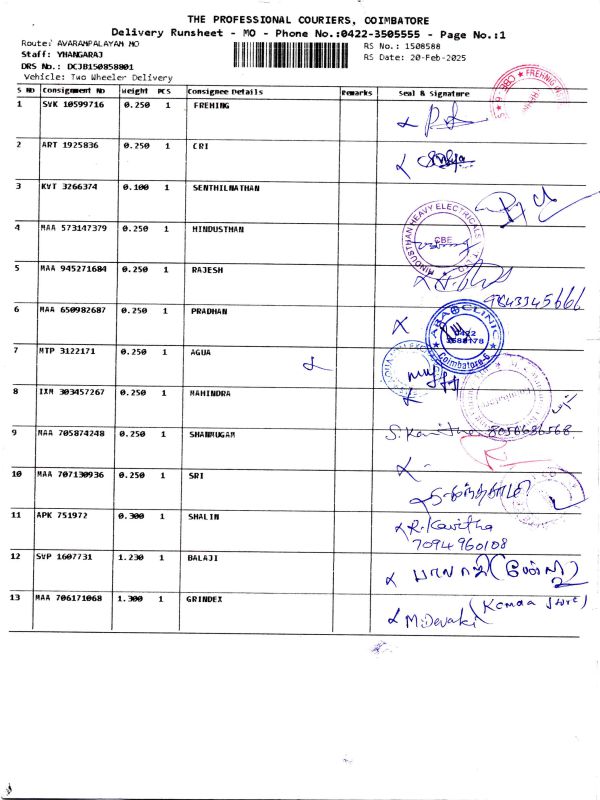 THE PROFESSIONAL COURIERS, COIMBATORE
Delivery Runsheet - MO - Phone No.:0422-3505555 - Page No.:1
Route: AVARAMPALAYAM MO
RS No.: 1508588
Staff: YMANGARAJ
RS Date: 20-Feb-2025
DRS No.: DCJB150858801
Vehicle: Two Wheeler Delivery
S NO Consignment No Weight PCS Consignee Details Remarks Seal & Signature
1 SVK 10599716 0.250 1 FREHNG
2 ART 1925836 0.250 1 CRI
3 KVT 3266374 0.100 1 SENTHILNATHAN
4 MAA 573147379 0.250 1 HINDUSTHAN
HINDUSTHAN HEAVY ELECTRICALS
CBE
5 MAA 945271684 0.250 1 RAJESH
9843345666
6 MAA 650982687 0.250 1 PRADHAN
CLINIC
0422
Coimbatore-6
7 MTP 3122171 0.250 1 AGUA
8 IXM 303457267 0.250 1 MAHINDRA
9 MAA 705874248 0.250 1 SHANMUGAM
S. Kavitha 8056686568
10 MAA 707130936 0.250 1 SRI
11 APK 751972 0.300 1 SHALIN
R. Kavitha
7094960108
12 SVP 1607731 1.230 1 BALAJI
பாலாஜி
13 MAA 706171068 1.300 1 GRINDEX
M. Devaki